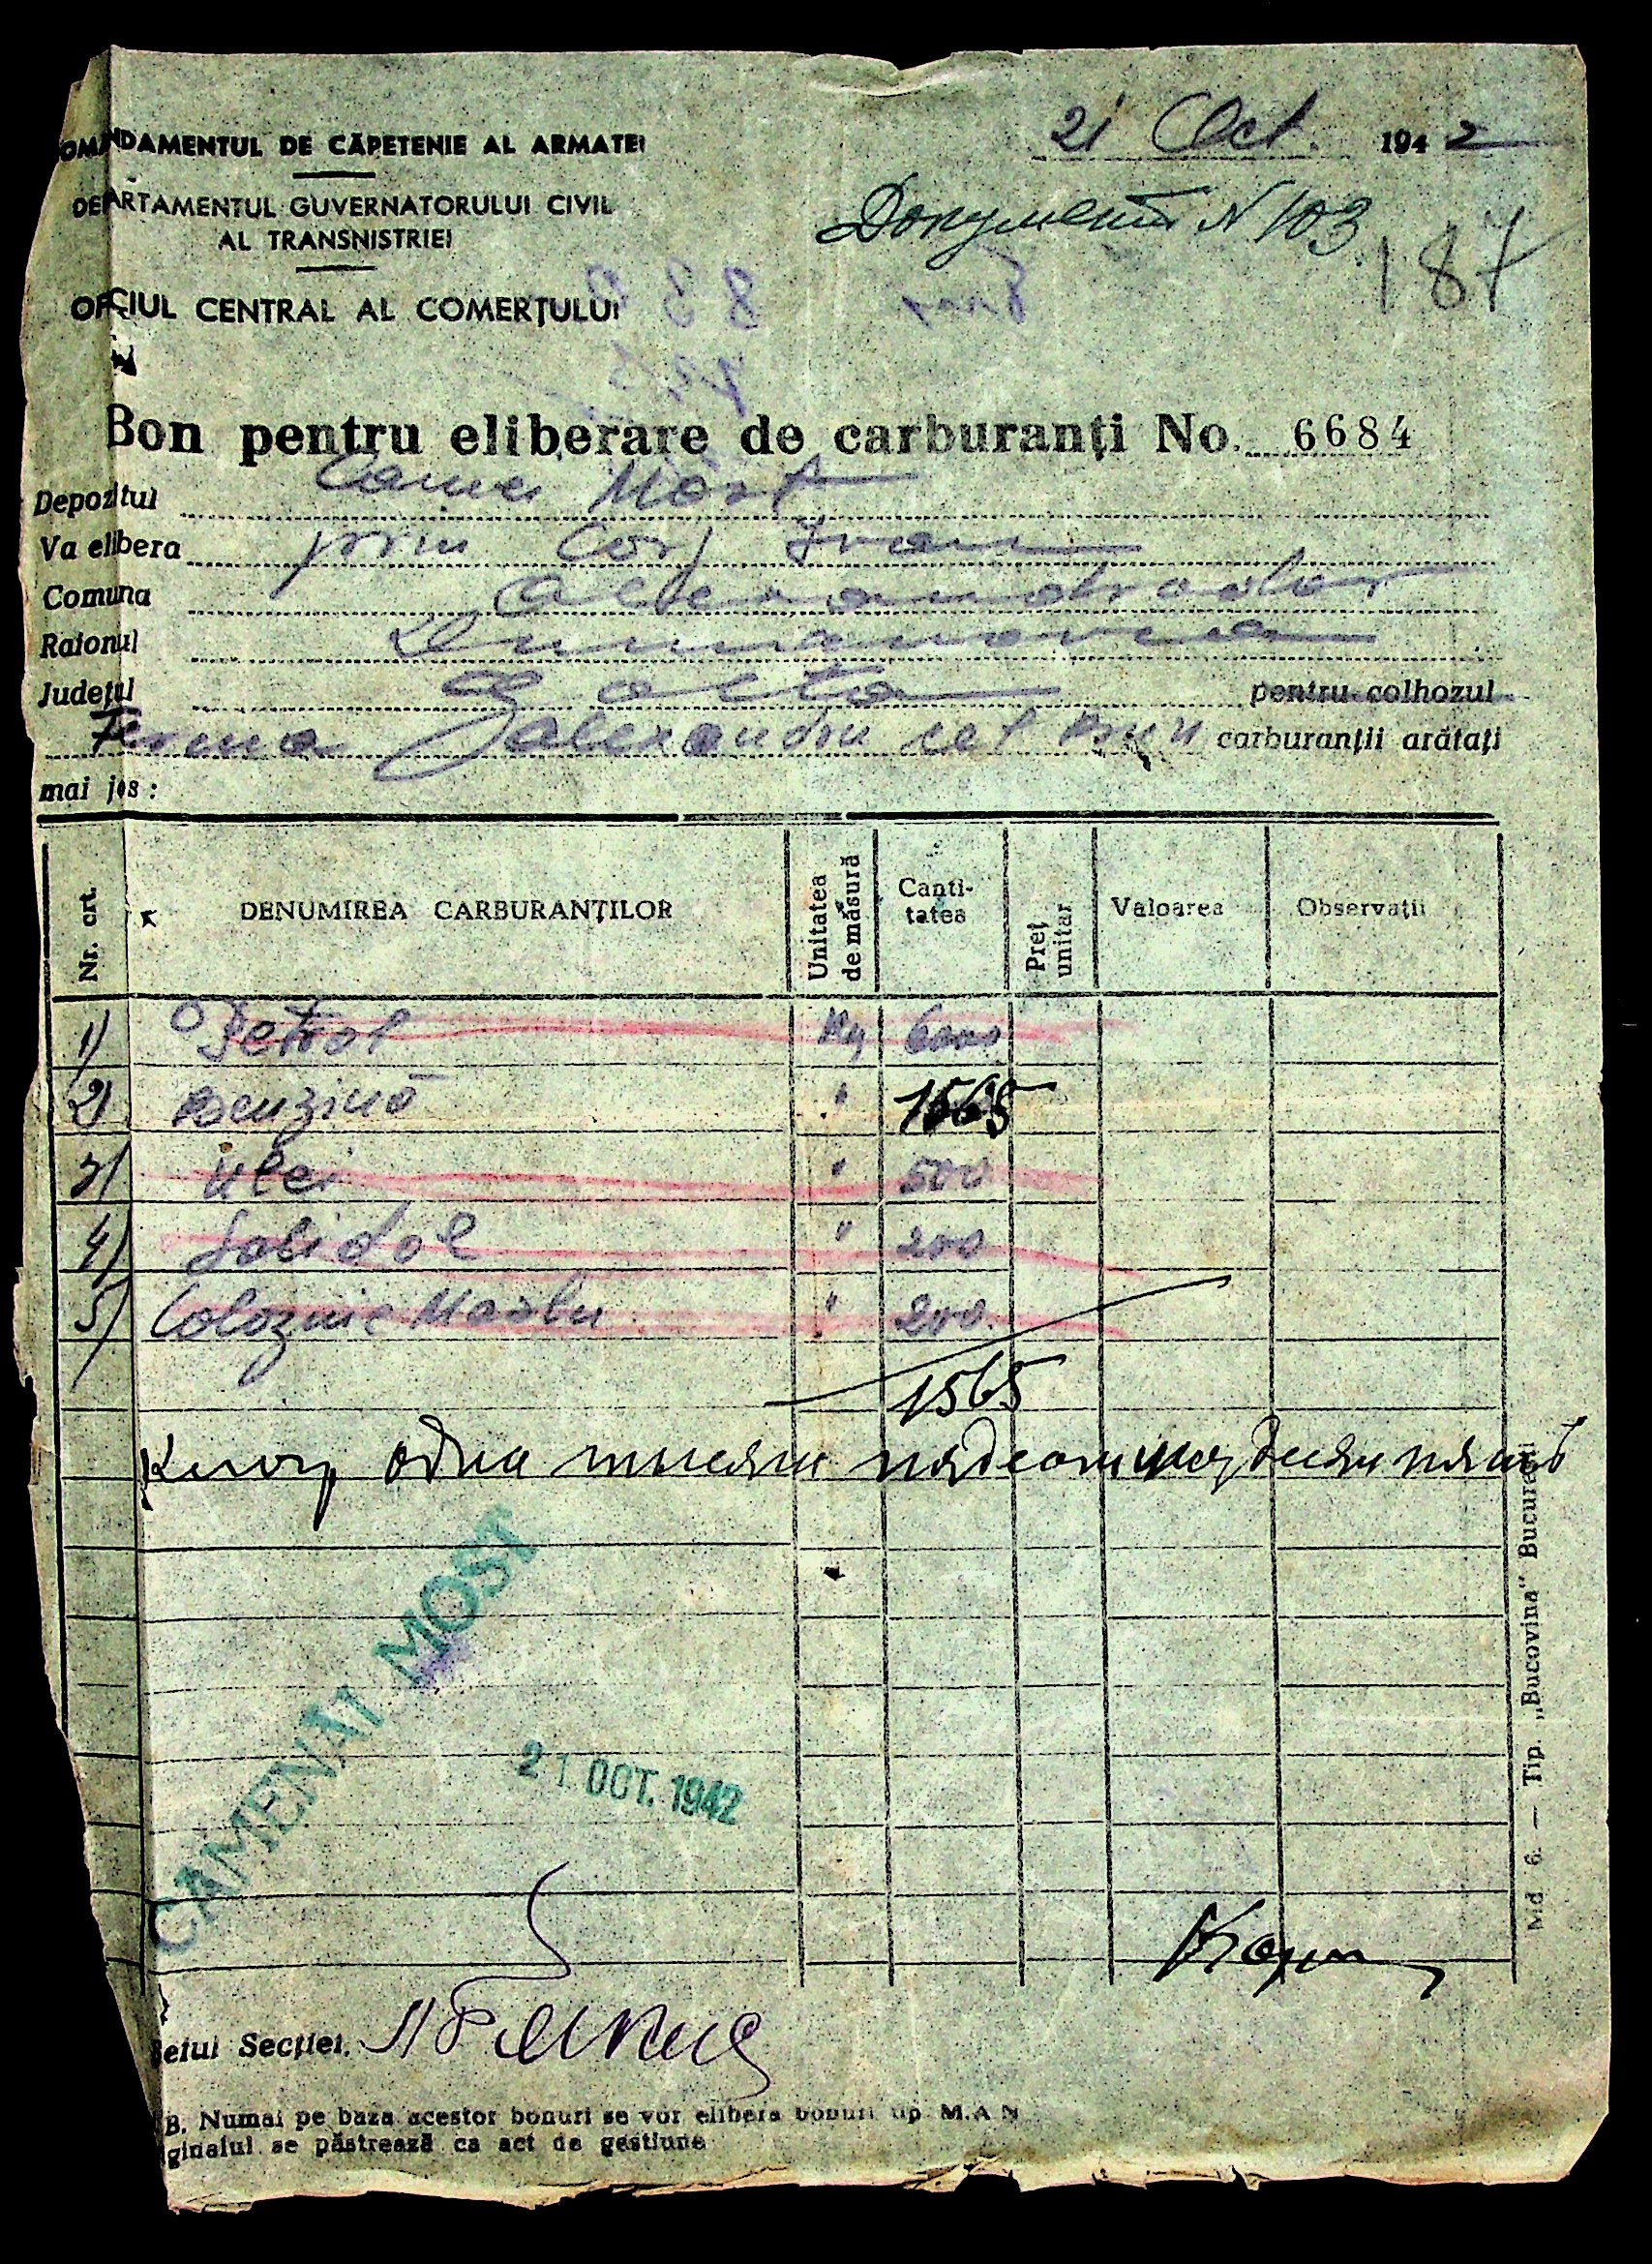 OMANDAMENTUL DE CĂPETENIE AL ARMATEI
21 Oct. 1942
DEPARTAMENTUL GUVERNATORULUI CIVIL
AL TRANSNISTRIEI
Документ N 103
187
OFICIUL CENTRAL AL COMERȚULUI
Bon pentru eliberare de carburanți No. 6684
Depozitul Camei Most
Va elibera prin Ivan
Comuna
Raionul Dumanovca
Județul Golta pentru colhozul
Ferma Alexandru cel Bun carburanții arătați
mai jos :
Nr. crt. DENUMIREA CARBURANȚILOR Unitatea de măsură Canti-tatea Preț unitar Valoarea Observații
1) Petrol Kg 6000
2) Benzină " 1565
3) Ulei " 500
4) Solidol " 200
5) " 200.
1565
одна тысяча пядсот шездесят пять
CAMENAI MOST
21 OCT. 1942
efui Secției.
B. Numai pe baza acestor bonuri se vor elibera bonuri tip M.A N
ginalul se păstrează ca act de gestiune
Md 6. — Tip. „Bucovina" București